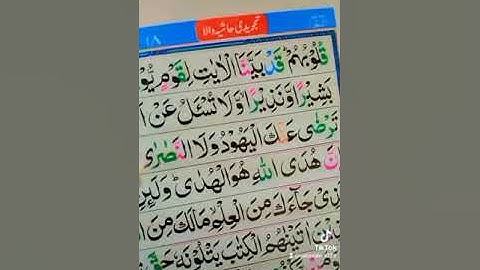 ١٨
تجویدی حاشیہ والا
قُلُوْبُهُمْ قَدْ بَيَّنَّا الْاٰيٰتِ لِقَوْمٍ يُّو
بَشِيْرًا وَّنَذِيْرًا وَّلَا تُسْـَٔلُ عَنْ ا
تَرْضٰى عَنْكَ الْيَهُوْدُ وَلَا النَّصٰرٰى
نَّ هُدَى اللّٰهِ هُوَ الْهُدٰى ؕ وَلَئِنِ
ذِىْ جَآءَكَ مِنَ الْعِلْمِ مَا لَكَ مِنَ ا
يْنَ اٰتَيْنٰهُمُ الْكِتٰبَ يَتْلُوْنَهٗ حَقَّ
TikTok